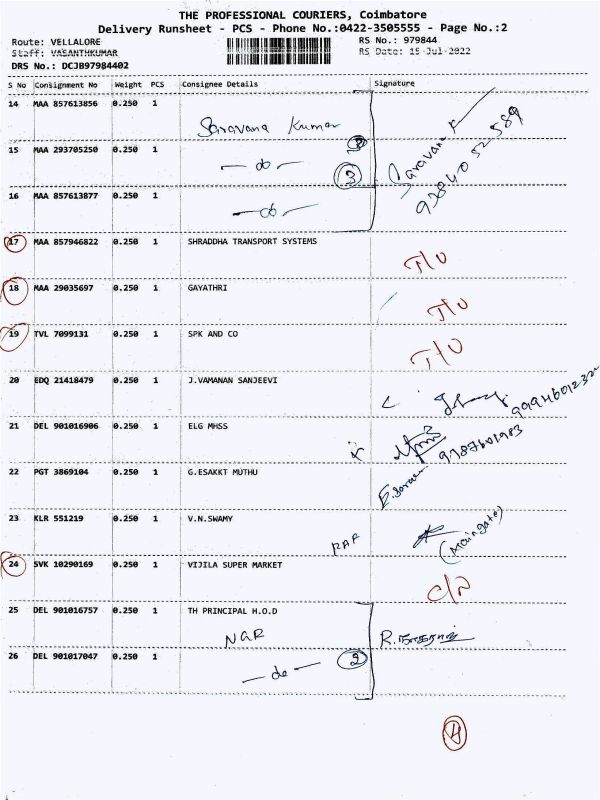 THE PROFESSIONAL COURIERS, Coimbatore
Delivery Runsheet - PCS - Phone No.:0422-3505555 - Page No.:2
Route: VELLALORE RS No.: 979844
Staff: VASANTHKUMAR RS Date: 15-Jul-2022
DRS No.: DCJB97984402
S No Consignment No Weight PCS Consignee Details Signature
14 MAA 857613856 0.250 1 Saravana Kumar
Saravana K
97840 52589
15 MAA 293705250 0.250 1 - do - 3
16 MAA 857613877 0.250 1 - do -
17 MAA 857946822 0.250 1 SHRADDHA TRANSPORT SYSTEMS T/U
18 MAA 29035697 0.250 1 GAYATHRI T/U
19 TVL 7099131 0.250 1 SPK AND CO T/U
20 EDQ 21418479 0.250 1 J.VAMANAN SANJEEVI
21 DEL 901016906 0.250 1 ELG MHSS 9787601983
22 PGT 3869104 0.250 1 G.ESAKKT MUTHU
23 KLR 551219 0.250 1 V.N.SWAMY (Maingate)
24 SVK 10290169 0.250 1 VIJILA SUPER MARKET
25 DEL 901016757 0.250 1 TH PRINCIPAL H.O.D
NGR
26 DEL 901017047 0.250 1 - do - 2
4